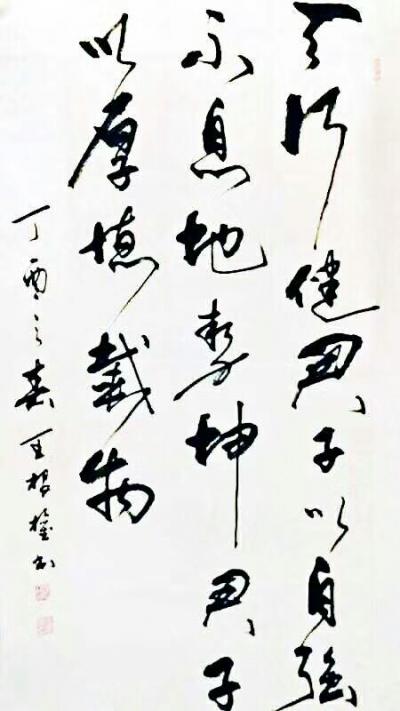 天行健君子以自强
不息地势坤君子
以厚德载物
丁酉之春王根权书